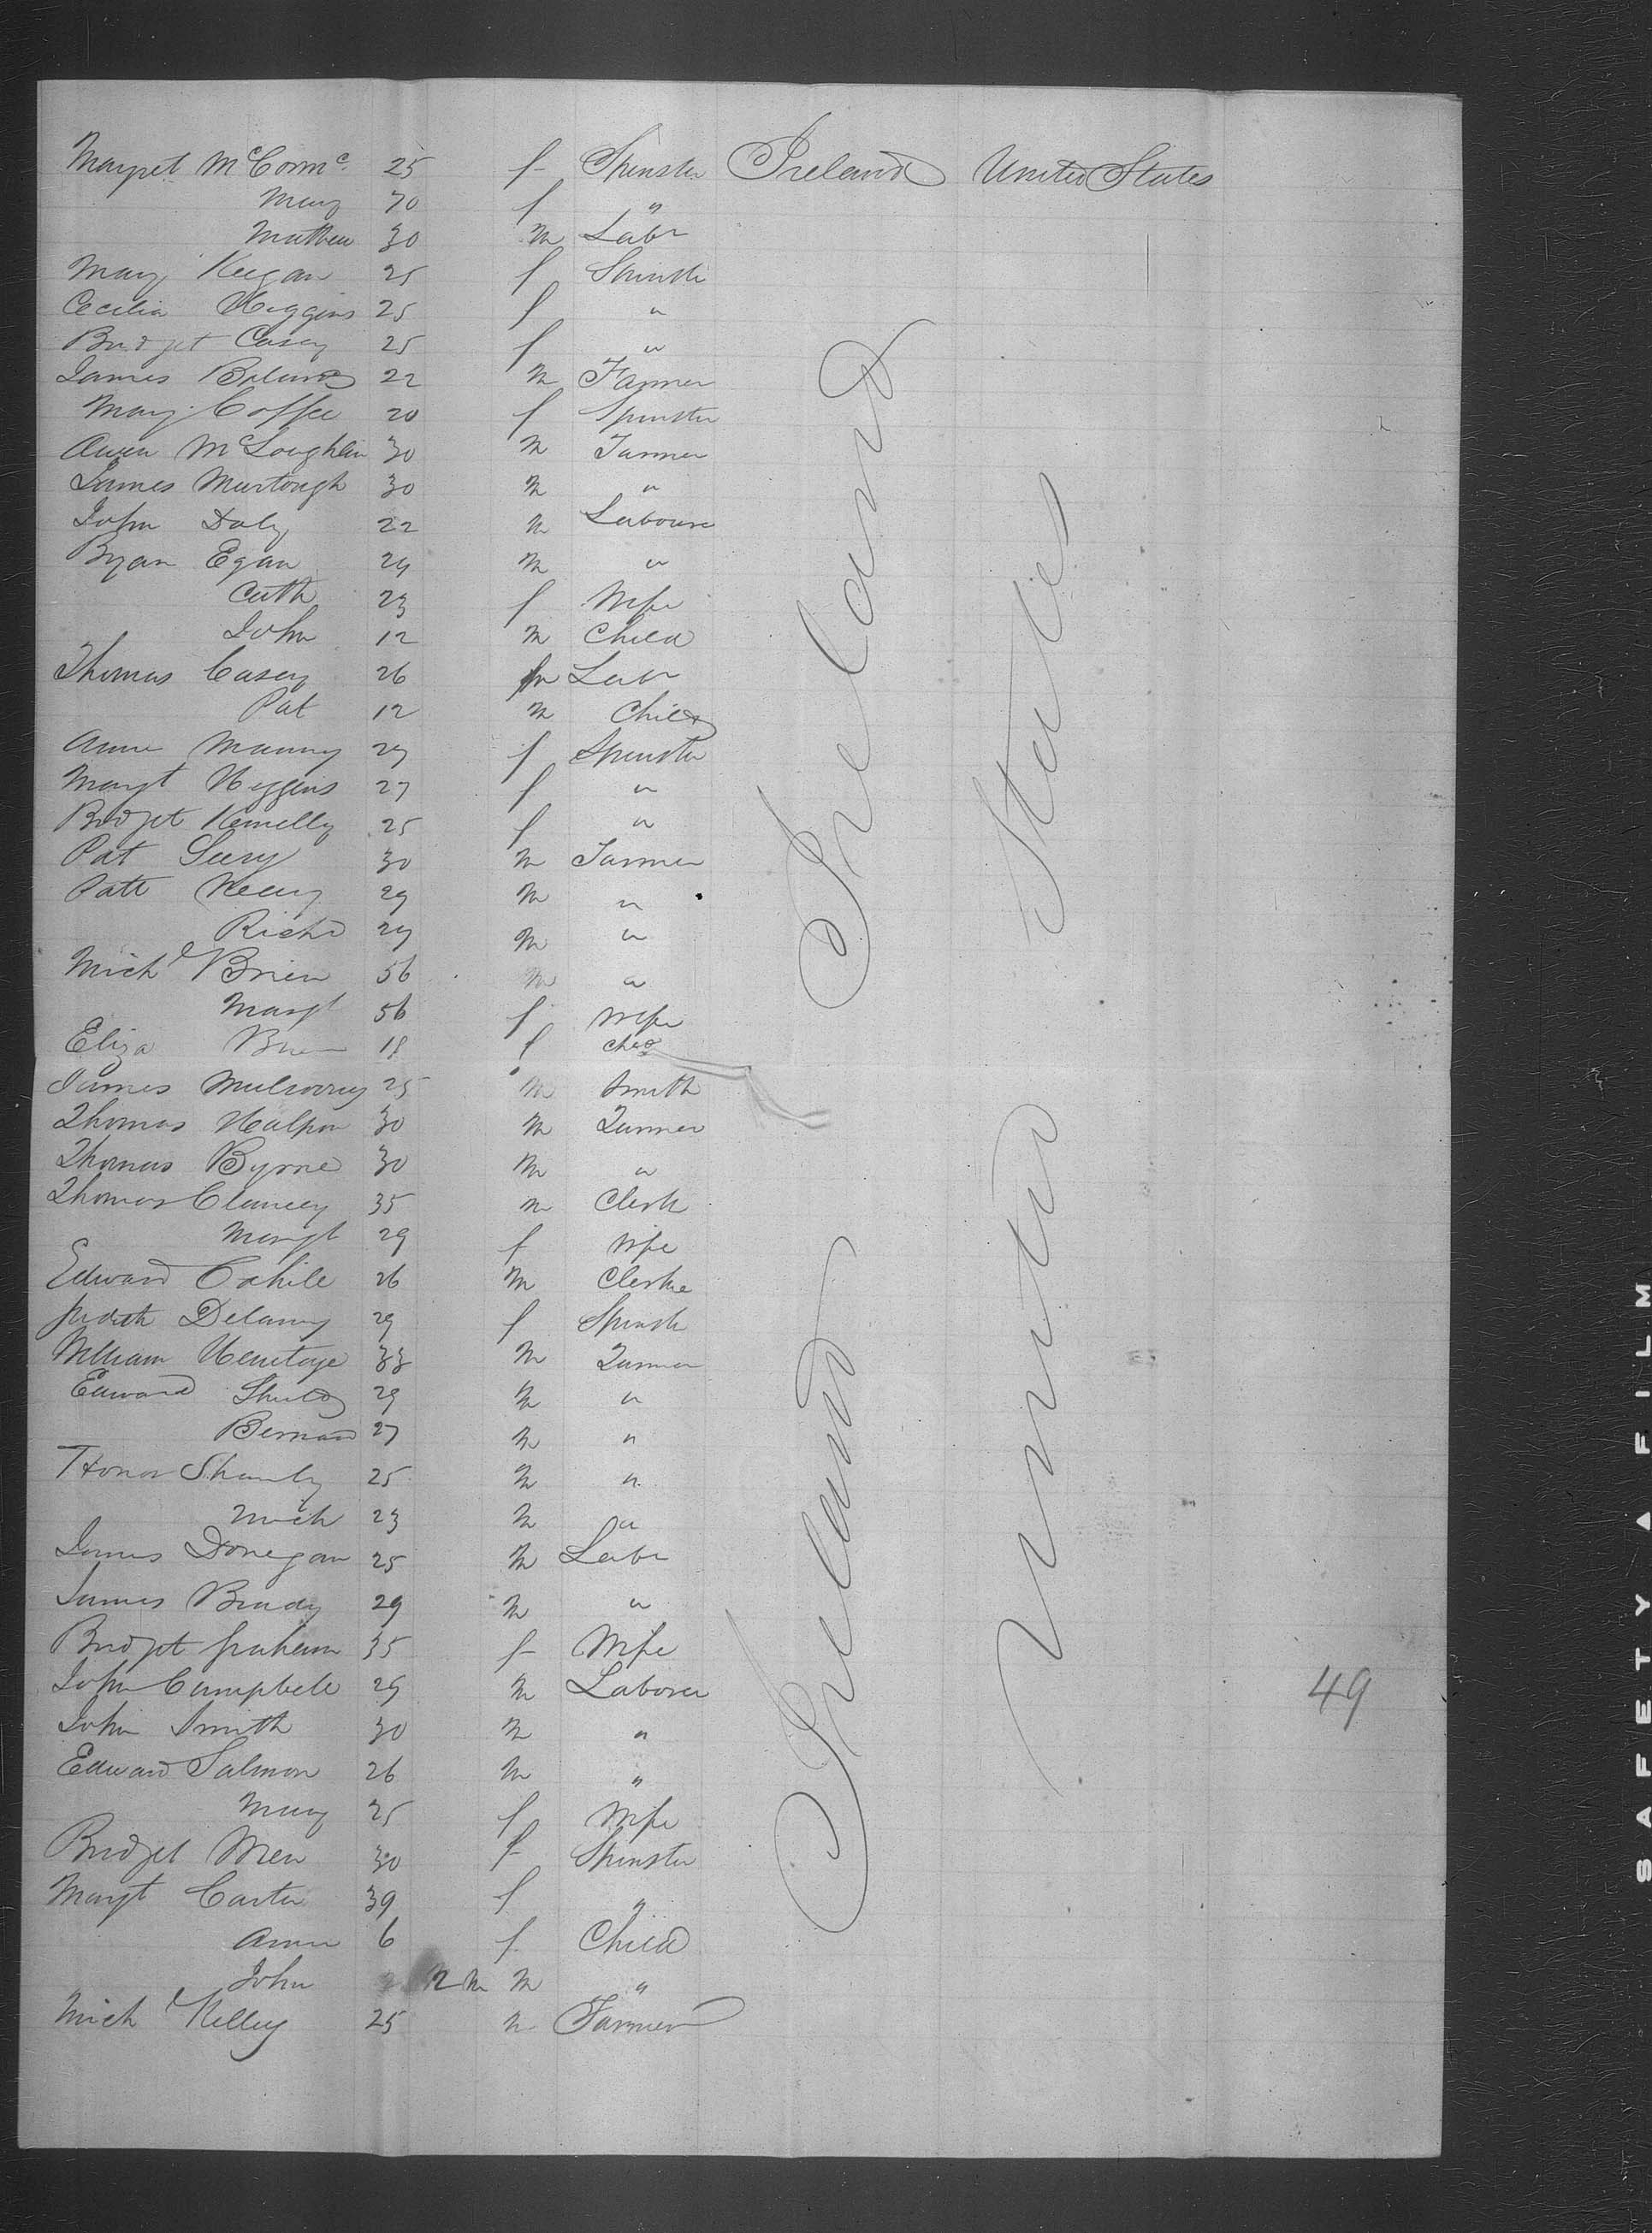 Margret McCormc. 25 f Spinster Ireland United States
Mary 70 f "
Mathew 30 m Labr
Mary Keegan 25 f Spinster
Cecilia Higgins 25 f "
Bridget Casey 25 f "
James 22 m Farmer
Mary Coffee 20 f Spinster
Owen McLoughlin 30 m Farmer
James Murtough 30 m "
John Daly 22 m Laboure
Bryan Egan 29 m "
Cath 23 f Wife
John 12 m Child
Thomas Casey 26 m Labr
Pat 12 m Child
Anne Manny 29 f Spinster
Margt Higgins 27 f "
Bridget Kennelly 25 f "
Pat Leery 30 m Farmer
Patt 29 m "
Richd 29 m "
Michl Brien 56 m "
Margt 56 f Wife
Eliza Brien 18 f Child
James Mulrooney 25 m Smith
Thomas Halpon 30 m Farmer
Thomas Byrne 30 m "
Thomas Clancey 35 m Clerk
Margt 29 f Wife
Edward Cahile 26 m Clerke
Judith Delany 29 f Spinste
William Hemitage 33 m Farmer
Edward Shield 29 m "
Bernard 27 m "
Honor Shanly 25 m "
Mich 23 m "
James Donegan 25 m Labr
James Brady 29 m "
Bridget Graham 35 f Wife
John Campbell 29 m Laborer
John Smith 30 m "
Edward Salmon 26 m "
Mary 25 f Wife
Bridget 30 f Spinster
Margt Carter 39 f "
Ann 6 f Child
John 2 m m "
Michl Kelley 25 m Farmer
Ireland
Ireland
United States
49
SAFETY A FILM